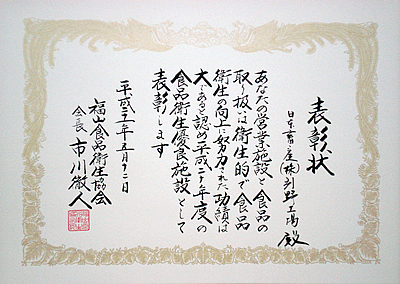 表彰状
日本畜産(株)刈野工場 殿
あなたの営業施設と食品の
取り扱いは衛生的で食品
衛生の向上に努力された功績は
大であると認め平成二十年度の
食品衛生優良施設として
表彰します
平成二十一年五月十二日
福山食品衛生協会
会長 市川徹人